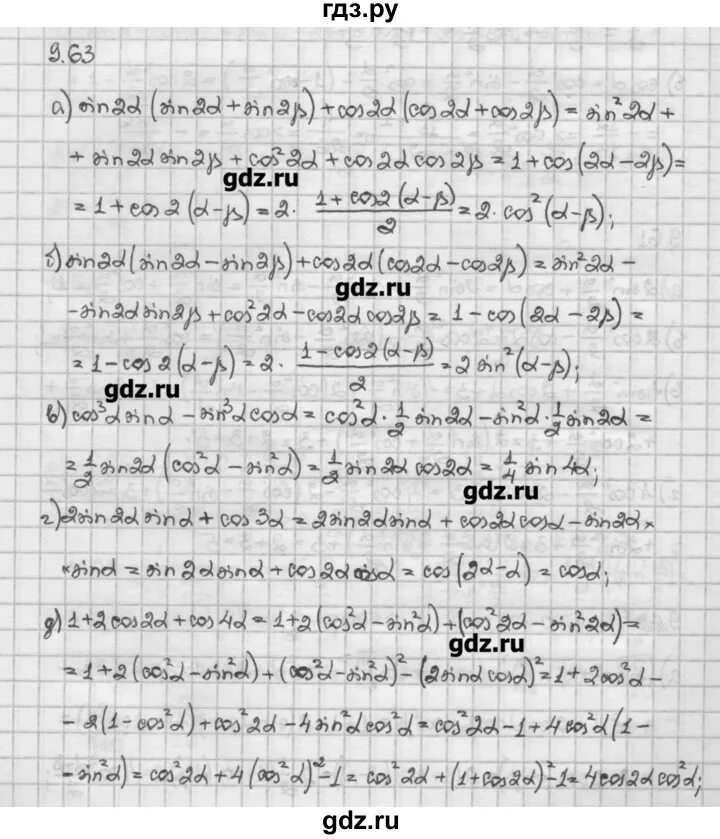 гдз.ру
9.63
а) sin2α (sin2α + sin2β) + cos2α (cos2α + cos2β) = sin²2α +
+ sin2α sin2β + cos²2α + cos2α cos2β = 1 + cos(2α - 2β) =
gdz.ru
= 1 + cos2(α - β) = 2 · (1 + cos2(α - β))/2 = 2 · cos²(α - β);
б) sin2α (sin2α - sin2β) + cos2α (cos2α - cos2β) = sin²2α -
gdz.ru
- sin2α sin2β + cos²2α - cos2α cos2β = 1 - cos(2α - 2β) =
= 1 - cos2(α - β) = 2 · (1 - cos2(α - β))/2 = 2 sin²(α - β);
gdz.ru
в) cos³α sinα - sin³α cosα = cos²α · 1/2 sin2α - sin²α · 1/2 sin2α =
= 1/2 sin2α (cos²α - sin²α) = 1/2 sin2α cos2α = 1/4 sin4α;
gdz.ru
г) 2sin2α sinα + cos3α = 2sin2α sinα + cos2α cosα - sin2α ×
× sinα = sin2α sinα + cos2α cosα = cos(2α - α) = cosα;
д) 1 + 2cos2α + cos4α = 1 + 2(cos²α - sin²α) + (cos²2α - sin²2α) =
gdz.ru
= 1 + 2(cos²α - sin²α) + (cos²α - sin²α)² - (2sinα cosα)² = 1 + 2cos²α -
- 2(1 - cos²α) + cos²2α - 4sin²α cos²α = cos²2α - 1 + 4cos²α (1 -
- sin²α) = cos²2α + 4(cos²α)² - 1 = cos²2α + (1 + cos2α)² - 1 = 4cos2α cos²α;
gdz.ru